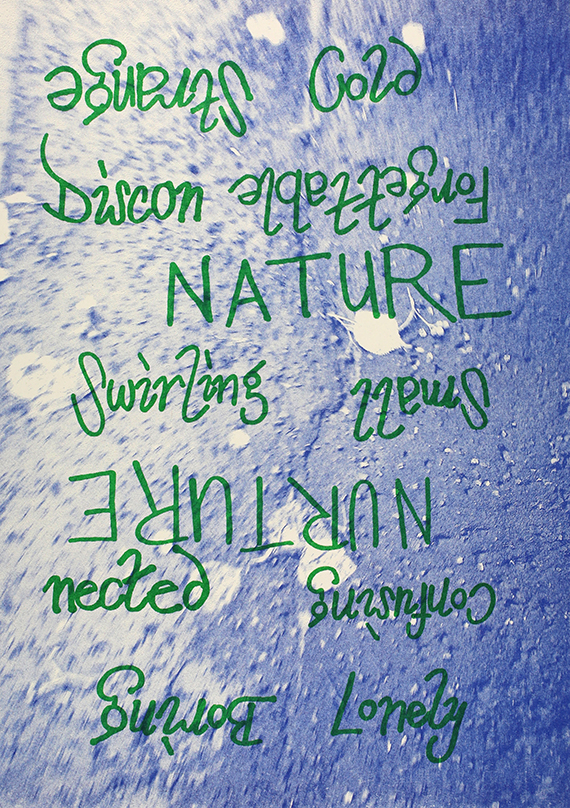 Strange Cold
Discon Forgettable
NATURE
Swirling Small
NURTURE
nected Confusing
Boring Lonely